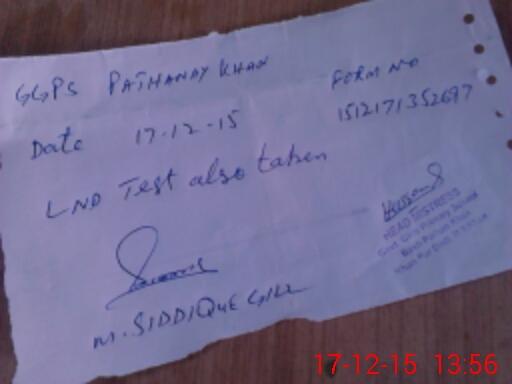 GGPS PATHANAY KHAN
FORM NO
Date 17-12-15
1512171352697
LND Test also taken
HEAD MISTRESS
Govt. Girls Primary School
M. SIDDIQUE GILL
17-12-15 13:56